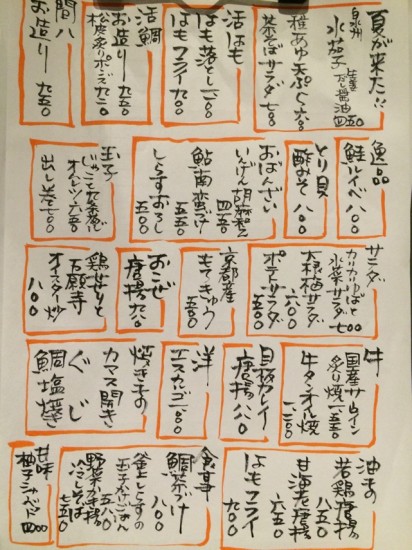 夏が来た!!
泉州
水茄子
生姜だし醤油 四五〇
稚あゆ天ぷら 六〇〇
茶そばサラダ 七〇〇
活はも
はも落とし 一二〇〇
はもフライ 九〇〇
活鯛
お造り 九五〇
松皮炙りポン酢 九二〇
間八
お造り 九五〇
逸品
鮭ルイベ 八〇〇
とり貝
酢みそ 八〇〇
おばんざい
いんげん胡麻和え 四五〇
鮎南蛮づけ 五五〇
しらすおろし 五五〇
玉子
じゃこと九条葱の
オムレツ 六五〇
出し巻 七〇〇
サラダ
カリカリゆばと
水菜サラダ 七〇〇
大根梅サラダ 六〇〇
ポテトサラダ 五〇〇
京都産
もてきゅう 五〇〇
おこぜ
唐揚
鶏せせりと
万願寺
オイスター炒 八〇〇
牛
国産サーロイン
炙り焼 一八五〇
牛タンオイル焼 一二〇〇
目板カレイ
唐揚 八八〇
洋
エスカルゴ 一二〇〇
焼き子の
カマス開き
ぐじ
鯛塩焼き
油もの
若鶏唐揚 八五〇
甘海老唐揚 六五〇
はもフライ 九〇〇
食事
鯛茶づけ 八〇〇
釜上しらすの
玉子かけごはん 五八〇
野菜かき揚
冷しそば 七五〇
甘味
柚子シャーベット 四〇〇